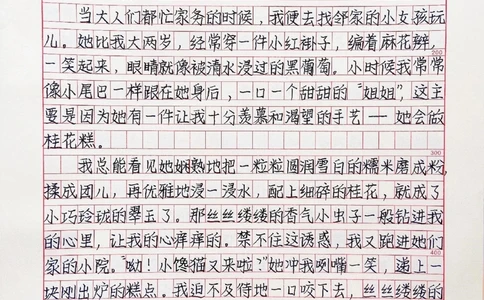 当大人们都忙家务的时候，我便去找邻家的小女孩玩
儿。她比我大两岁，经常穿一件小红褂子，编着麻花辫，
200
一笑起来，眼睛就像被清水浸过的黑葡萄。小时候我常常
像小尾巴一样跟在她身后，一口一个甜甜的“姐姐”，这主
要是因为她有一件让我十分羡慕和渴望的手艺——她会做
桂花糕。
300
我总能看见她娴熟地把一粒粒圆润雪白的糯米磨成粉，
揉成团儿，再优雅地浸一浸水，配上细碎的桂花，就成了
小巧玲珑的翠玉了。那丝丝缕缕的香气小虫子一般钻进我
的心里，让我的心痒痒的。禁不住这诱惑，我又跑进她们
400
家的小院。“呦！小馋猫又来啦？”她冲我咧嘴一笑，递上一
块刚出炉的糕点。我迫不及待地一口咬下去，丝丝缕缕的